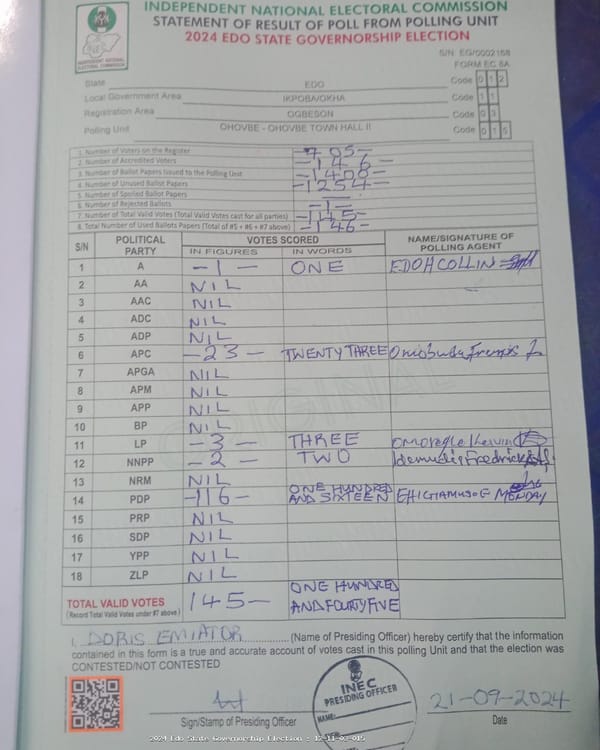 INDEPENDENT NATIONAL ELECTORAL COMMISSION
STATEMENT OF RESULT OF POLL FROM POLLING UNIT
2024 EDO STATE GOVERNORSHIP ELECTION
INDEPENDENT NATIONAL ELECTORAL COMMISSION
S/N: EG/0002168
FORM EC 8A
State EDO Code 0 1 2
Local Government Area IKPOBA/OKHA Code 1 1
Registration Area OGBESON Code 0 3
Polling Unit OHOVBE - OHOVBE TOWN HALL II Code 0 1 5
1. Number of Voters on the Register -705-
2. Number of Accredited Voters -146-
3. Number of Ballot Papers Issued to the Polling Unit -1400-
4. Number of Unused Ballot Papers -1254-
5. Number of Spoiled Ballot Papers
6. Number of Rejected Ballots -1-
7. Number of Total Valid Votes (Total Valid Votes cast for all parties) -145-
8. Total Number of Used Ballots Papers (Total of #5 + #6 + #7 above) -146-
S/N POLITICAL PARTY VOTES SCORED NAME/SIGNATURE OF POLLING AGENT
IN FIGURES IN WORDS
1 A -1- ONE EDOH COLLIN
2 AA NIL
3 AAC NIL
4 ADC NIL
5 ADP NIL
6 APC -23- TWENTY THREE
7 APGA NIL
8 APM NIL
9 APP NIL
10 BP NIL
11 LP -3- THREE
12 NNPP -2- TWO Fredrick
13 NRM NIL
14 PDP -116- ONE HUNDRED AND SIXTEEN MONDAY
15 PRP NIL
16 SDP NIL
17 YPP NIL
18 ZLP NIL
TOTAL VALID VOTES 145- ONE HUNDRED AND FOURTY FIVE
(Record Total Valid Votes under #7 above)
ORIGINAL
I, DORIS EMIATOR (Name of Presiding Officer) hereby certify that the information
contained in this form is a true and accurate account of votes cast in this polling Unit and that the election was
CONTESTED/NOT CONTESTED
INEC
PRESIDING OFFICER
NAME:
21-09-2024
Sign/Stamp of Presiding Officer Date
2024 Edo State Governorship Election : 12-11-03-015